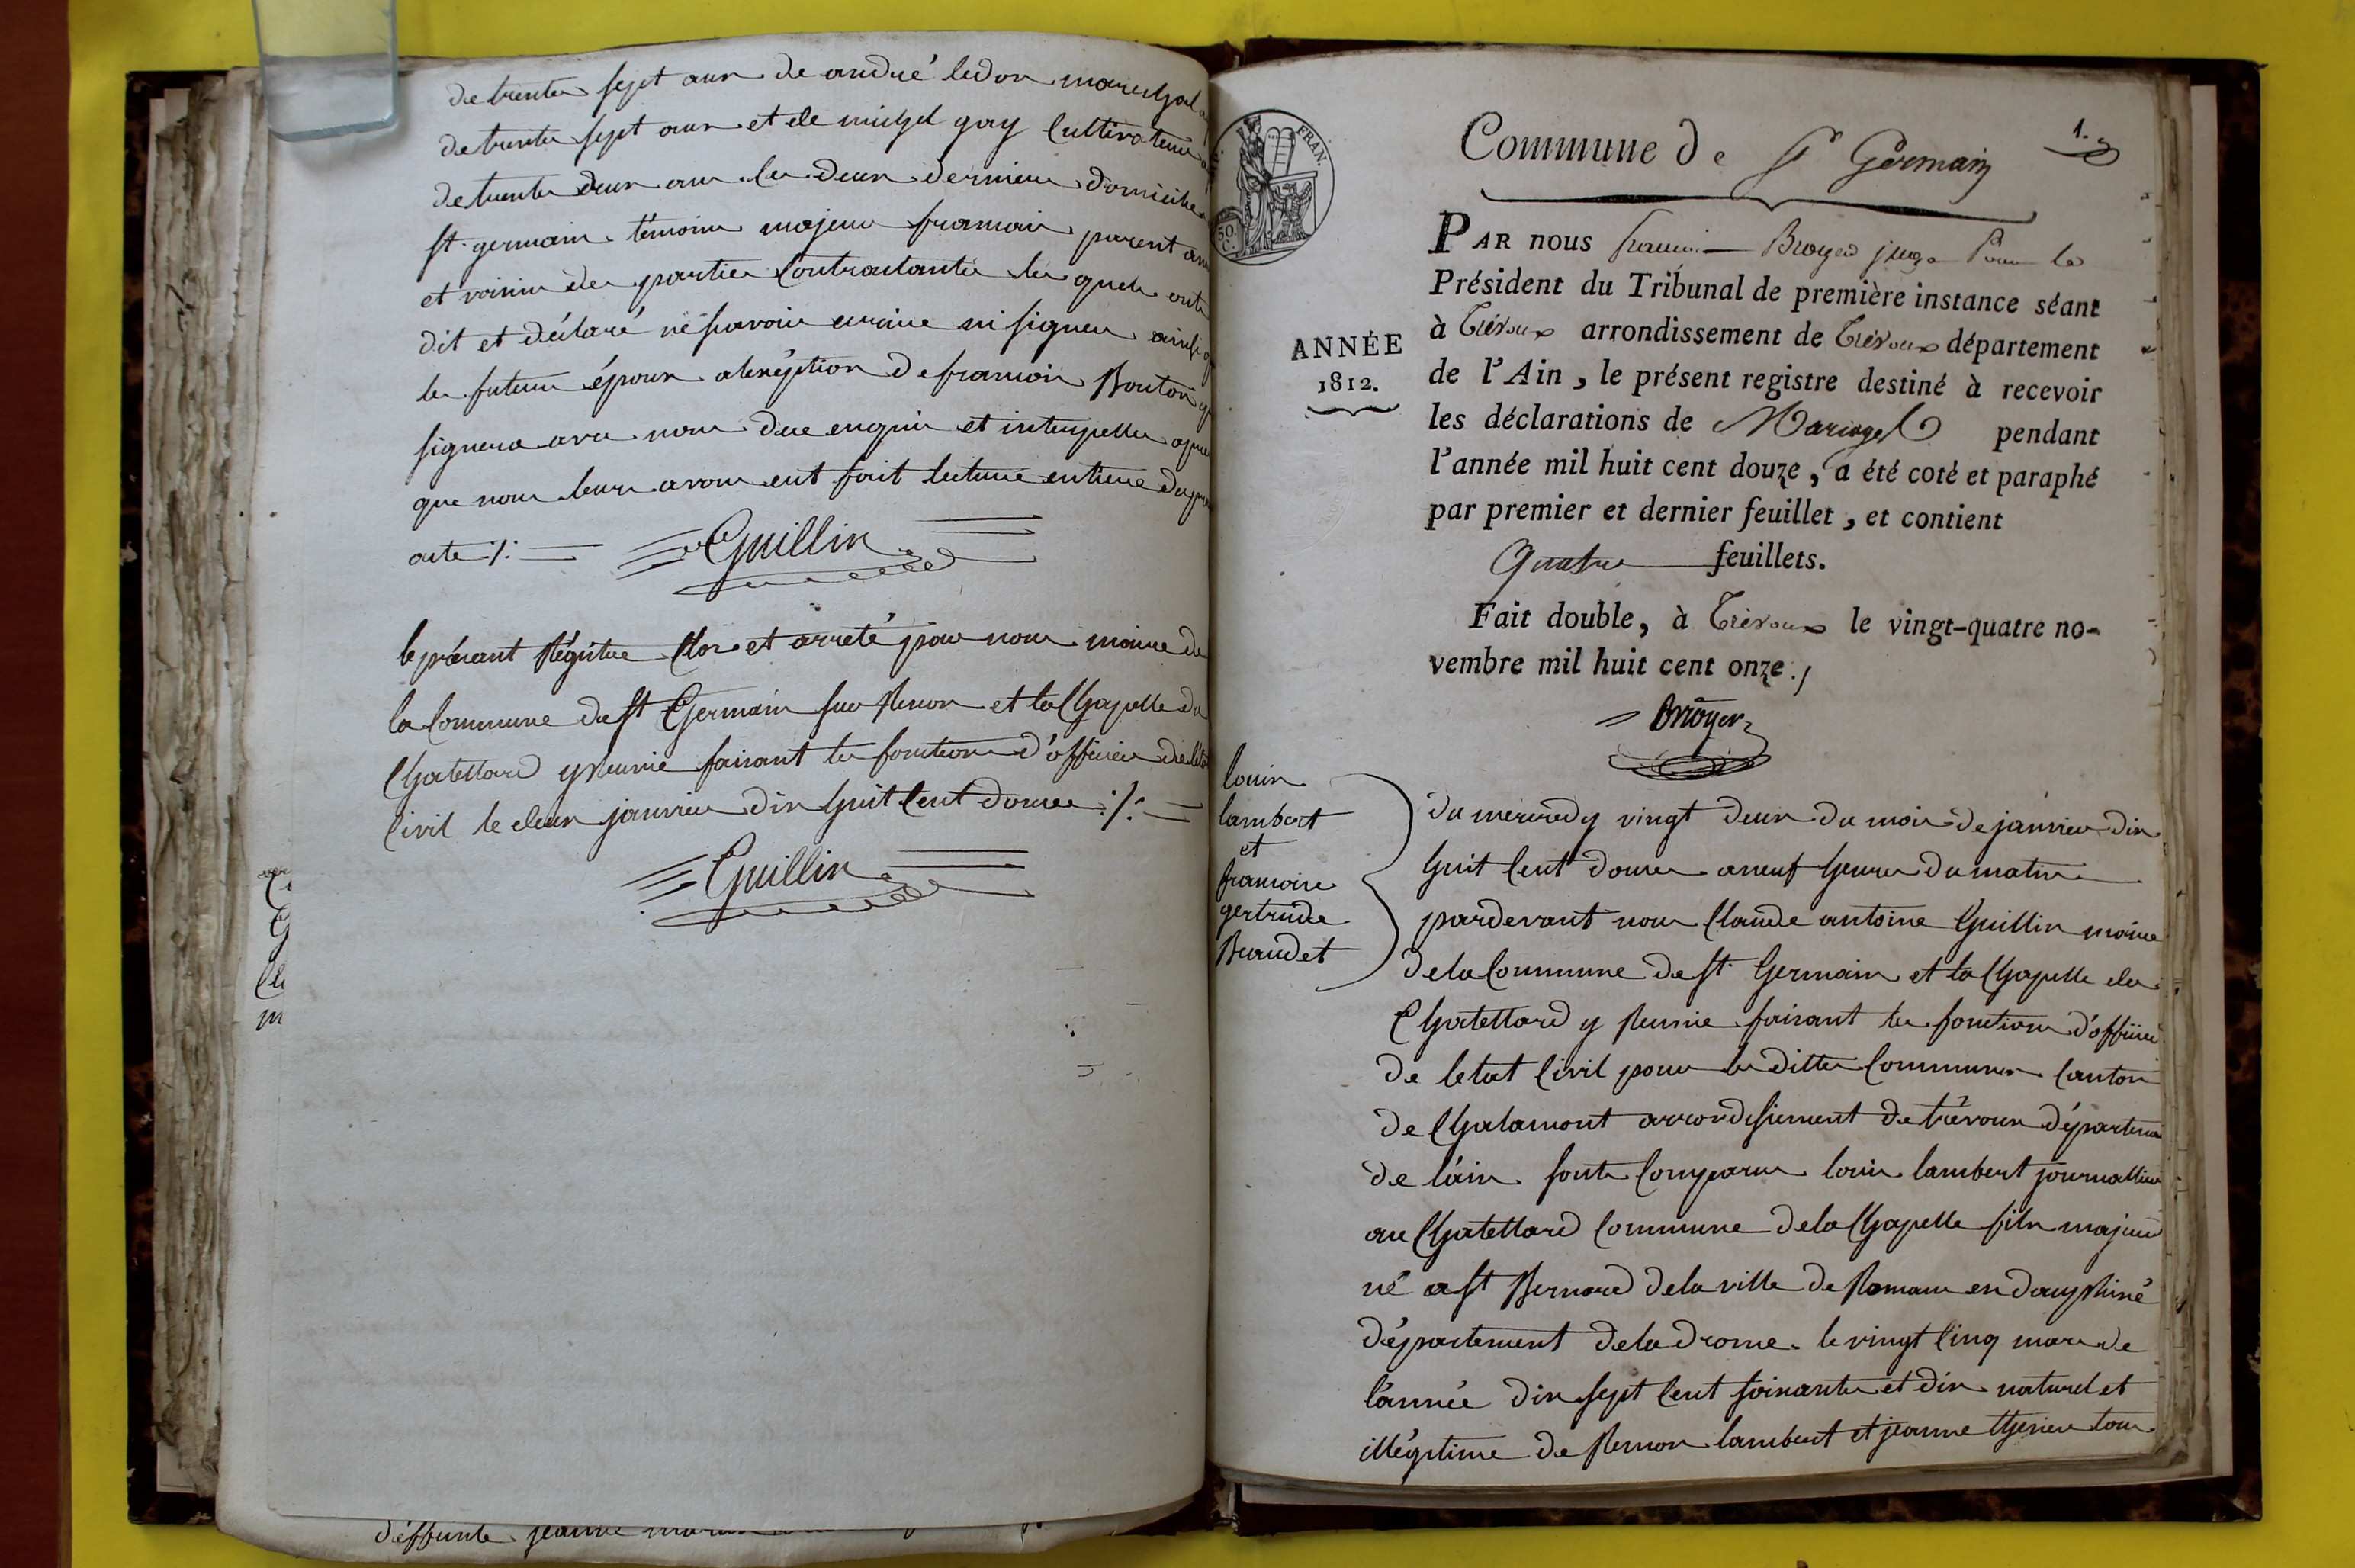 de trente sept ans de andré ledon marechal
de trente sept ans et de michel gay Cultivateur
de trente deux ans les deux derniers domiciliés
st. germain témoins majeurs francais parent ami
et voisin des parties Contractantes les quels ont
dit et déclaré ne savoir ecrire ni signer ainsi q
les futurs époux a lexéption de francois Bouton q
signera avec nous de ce enquis et interpellés apres
que nous leurs avons eut fait lecture entiere du pre
acte ./. Guillin
le présent Régitre Clos et arreté par nous maire de
la Commune de st Germain sur Renon et la Chapelle du
Chatellard y Reunie faisant les fonctions d'officier de l'éta
Civil le deux janvier dix huit Cent douze ./.
Guillin
déffunte jeanne
Commune de St Germain
1.
FRAN.
50.
C.
PAR nous francois Broyer juge Pour le
Président du Tribunal de première instance séant
à Trévoux arrondissement de Trévoux département
ANNÉE
1812.
de l'Ain, le présent registre destiné à recevoir
les déclarations de Mariages pendant
l'année mil huit cent douze, a été coté et paraphé
par premier et dernier feuillet, et contient
Quatre feuillets.
Fait double, à Trévoux le vingt-quatre no-
vembre mil huit cent onze./
Broyer
louis
lambert
et
francoise
gertrude
Buaudet
du mercredy vingt deux du mois de janvier dix
huit Cent douze a neuf heures du matin
pardevant nous Claude antoine Guillin maire
de la Commune de st. Germain et la Chapelle du
Chatellard y Reunie faisant les fonctions d'officier
de letat Civil pour les dittes Communes Canton
de Chalamont arrondissement de trévoux départem
de l'ain sont Comparus louis lambert journallier
au Chatellard Commune de la Chapelle fils majeur
né a st Bernard de la ville de Romans en dauphiné
département de la drome le vingt Cinq mars de
l'année dix sept Cent soixante et dix naturel et
illégitime de Remon lambert et jeanne